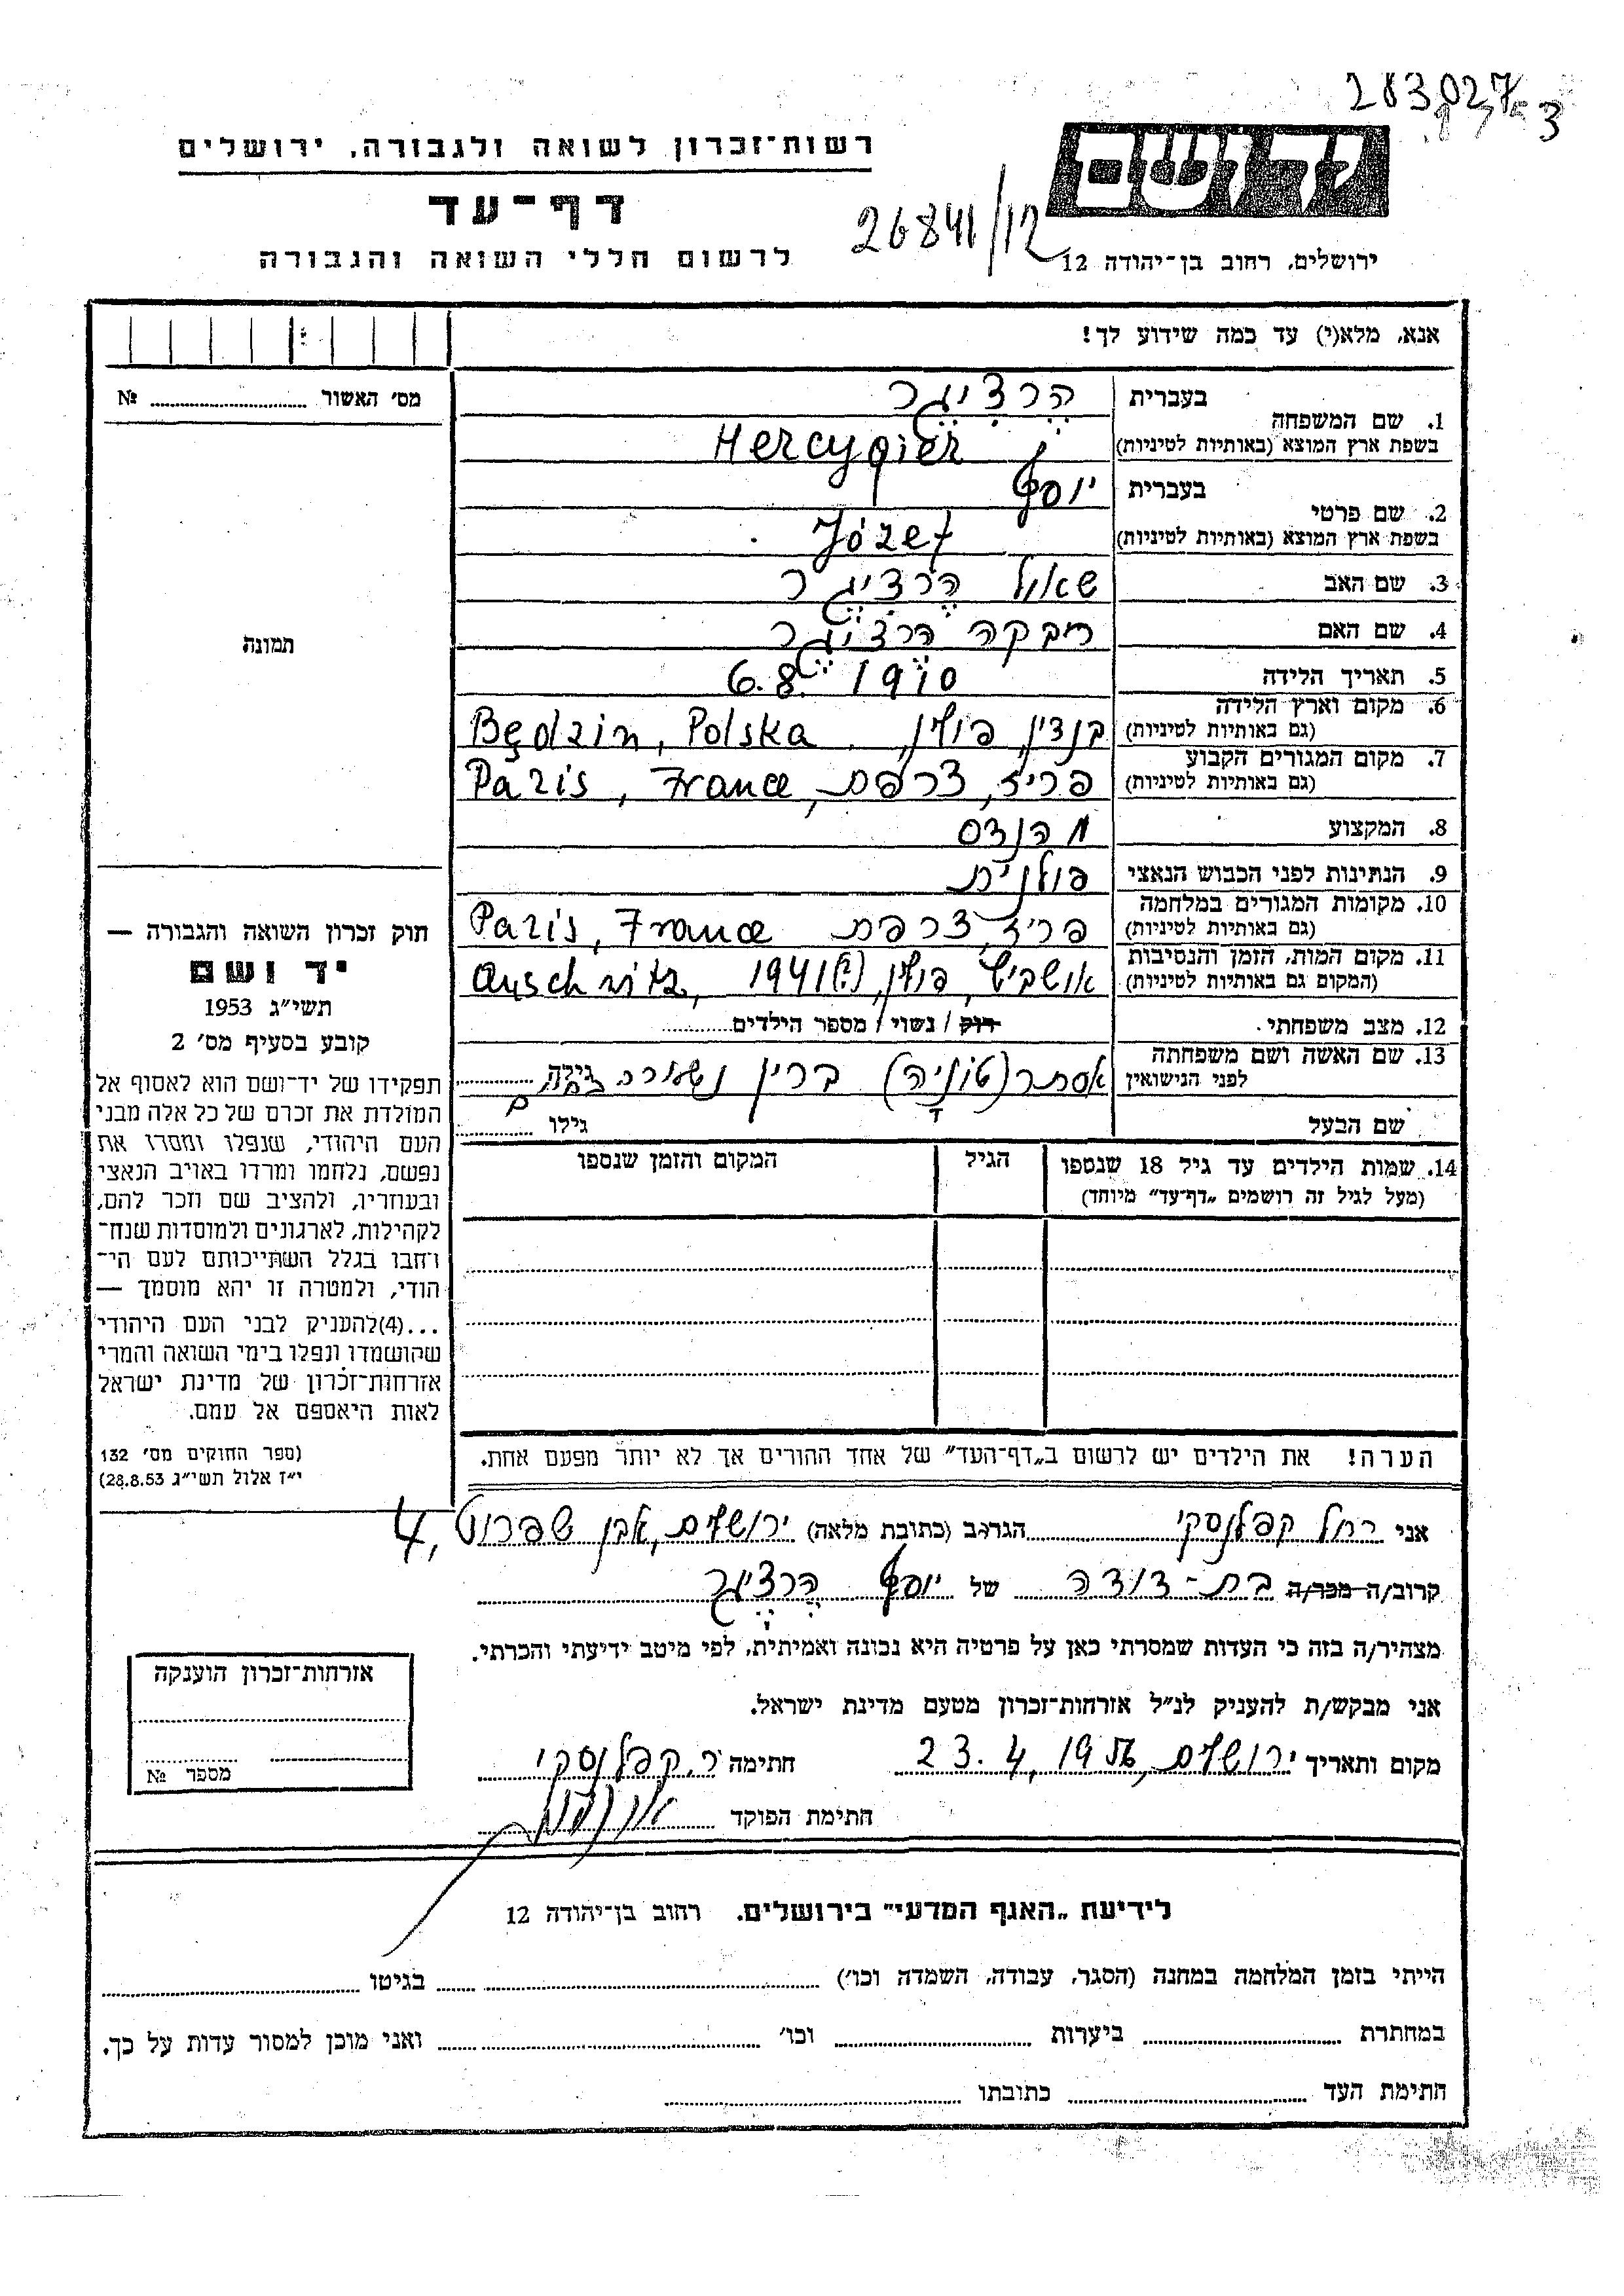 283027
3
רשות־זכרון לשואה ולגבורה, ירושלים
דף־עד
לרשום חללי השואה והגבורה
26841/12
יד ושם
ירושלים, רחוב בן־יהודה 12
אנא, מלא(י) עד כמה שידוע לך!
מס׳ האשור № 
תמונה
1. שם המשפחה בעברית הֶרְצִיגֶר
בשפת ארץ המוצא (באותיות לטיניות) Hercygier
2. שם פרטי בעברית יוסף
בשפת ארץ המוצא (באותיות לטיניות) Józef
3. שם האב שאול הרציגר
4. שם האם רבקה הרציגר
5. תאריך הלידה 6.8.1910
6. מקום וארץ הלידה (גם באותיות לטיניות) בנדין, פולין, Będzin, Polska
7. מקום המגורים הקבוע (גם באותיות לטיניות) פריז, צרפת, Paris, France
8. המקצוע מהנדס
9. הנתינות לפני הכבוש הנאצי פולנית
10. מקומות המגורים במלחמה (גם באותיות לטיניות) פריז, צרפת Paris, France
11. מקום המות, הזמן והנסיבות (המקום גם באותיות לטיניות) אושביץ, פולין, (?)1941 Auschwitz,
12. מצב משפחתי רוק / נשוי / מספר הילדים
13. שם האשה ושם משפחתה לפני הנישואין אסתר (טוניה) ברין גילה
שם הבעל גילו
14. שמות הילדים עד גיל 18 שנספו (מעל לגיל זה רושמים „דף־עד״ מיוחד) הגיל המקום והזמן שנספו
חוק זכרון השואה והגבורה —
יד ושם
תשי״ג 1953
קובע בסעיף מס׳ 2
תפקידו של יד־ושם הוא לאסוף אל
המולדת את זכרם של כל אלה מבני
העם היהודי, שנפלו ומסרו את
נפשם, נלחמו ומרדו באויב הנאצי
ובעוזריו, ולהציב שם וזכר להם,
לקהילות, לארגונים ולמוסדות שנח־
רחבו בגלל השתייכותם לעם הי־
הודי, ולמטרה זו יהא מוסמך —
...(4)להעניק לבני העם היהודי
שהושמדו ונפלו בימי השואה והמרי
אזרחות־זכרון של מדינת ישראל
לאות היאספם אל עמם.
(ספר החוקים מס׳ 132
י״ז אלול תשי״ג 28.8.53)
הערה! את הילדים יש לרשום ב„דף־העד״ של אחד ההורים אך לא יותר מפעם אחת.
אני רחל קפלנסקי הגר/ב (כתובת מלאה) ירושלים, אבן שפרוט 4,
קרוב/ה מכר/ה בת-דודה של יוסף הרציגר
מצהיר/ה בזה כי העדות שמסרתי כאן על פרטיה היא נכונה ואמיתית, לפי מיטב ידיעתי והכרתי.
אני מבקש/ת להעניק לנ״ל אזרחות־זכרון מטעם מדינת ישראל.
מקום ותאריך ירושלים, 23.4.1956 חתימה ר. קפלנסקי
חתימת הפוקד
אזרחות־זכרון הוענקה
מספר №
לידיעת „האגף המדעי״ בירושלים, רחוב בן־יהודה 12
הייתי בזמן המלחמה במחנה (הסגר, עבודה, השמדה וכו׳) בגיטו
במחתרת ביערות וכו׳ ואני מוכן למסור עדות על כך.
חתימת העד כתובתו